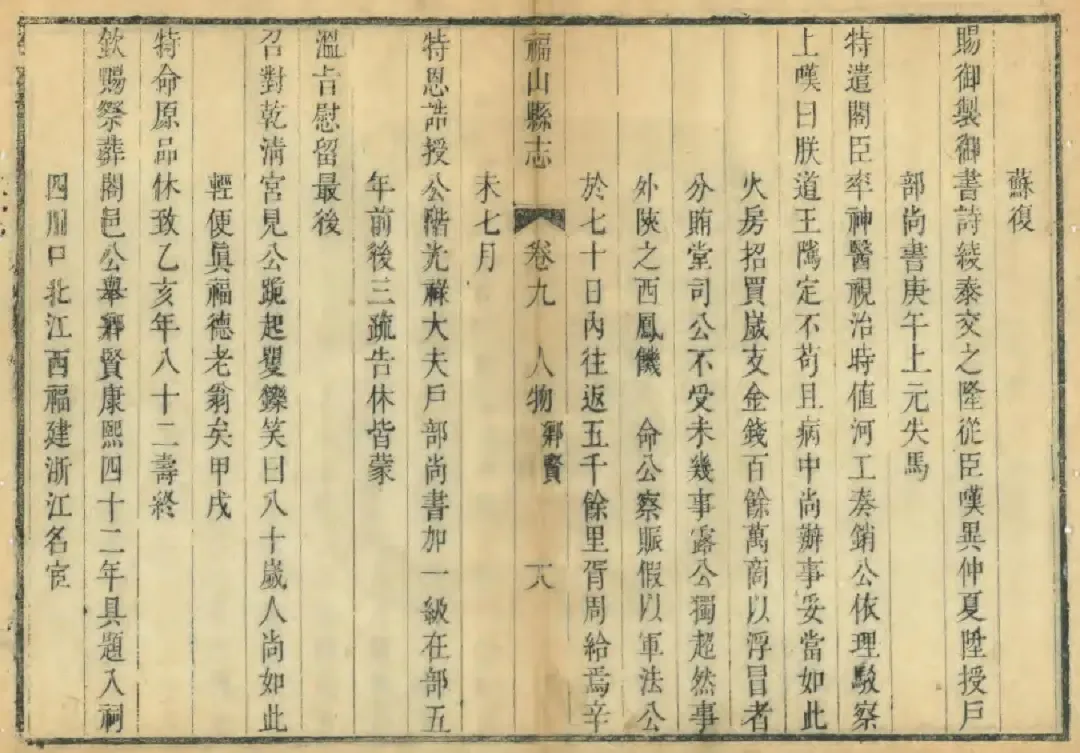 蘇復
賜御製御書詩綾泰交之隆從臣嘆異仲夏陞授戶
部尚書庚午上元失馬
特遣閣臣率神醫視治時值河工奏銷公依理駁察
上嘆曰朕道王隲定不苟且病中尚辦事妥當如此
火房招買歲支金錢百餘萬商以浮冒者
分賄堂司公不受未幾事露公獨超然事
外陝之西鳳饑 命公察賑假以軍法公
於七十日內往返五千餘里胥周給焉辛
福山縣志 卷九 人物 鄉賢 十八
未七月
特恩誥授公階光祿大夫戶部尚書加一級在部五
年前後三疏告休皆蒙
溫旨慰留最後
召對乾清宮見公跪起矍鑠笑曰八十歲人尚如此
輕便眞福德老翁矣甲戌
特命原品休致乙亥年八十二壽終
欽賜祭葬閤邑公舉鄉賢康熙四十二年具題入祠
四川口北江西福建浙江名宦